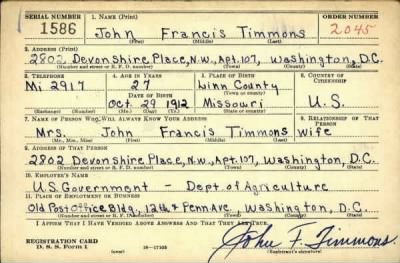 SERIAL NUMBER 1. NAME (Print) ORDER NUMBER
1586 John Francis Timmons 2045
(First) (Middle) (Last)
2. ADDRESS (Print)
2802 Devonshire Place, N.W., Apt. 107, Washington, D.C.
(Number and street or R. F. D. number) (Town) (County) (State)
3. TELEPHONE 4. AGE IN YEARS 5. PLACE OF BIRTH 6. COUNTRY OF CITIZENSHIP
Mi 2917 27 Linn County
DATE OF BIRTH (Town or county)
Oct. 29 1912 Missouri U.S.
(Exchange) (Number) (Mo.) (Day) (Yr.) (State or country)
7. NAME OF PERSON WHO WILL ALWAYS KNOW YOUR ADDRESS 8. RELATIONSHIP OF THAT PERSON
Mrs. John Francis Timmons wife
(Mr., Mrs., Miss) (First) (Middle) (Last)
9. ADDRESS OF THAT PERSON
2802 Devonshire Place, N.W., Apt. 107, Washington, D.C.
(Number and street or R. F. D. number) (Town) (County) (State)
10. EMPLOYER'S NAME
U.S. Government - Dept. of Agriculture
11. PLACE OF EMPLOYMENT OR BUSINESS
Old Post Office Bldg., 12th & Penn Ave., Washington, D.C.
(Number and street or R. F. D. number) (Town) (County) (State)
I AFFIRM THAT I HAVE VERIFIED ABOVE ANSWERS AND THAT THEY ARE TRUE.
REGISTRATION CARD John F. Timmons
D. S. S. Form 1 (over) 16-17105 (Registrant's signature)